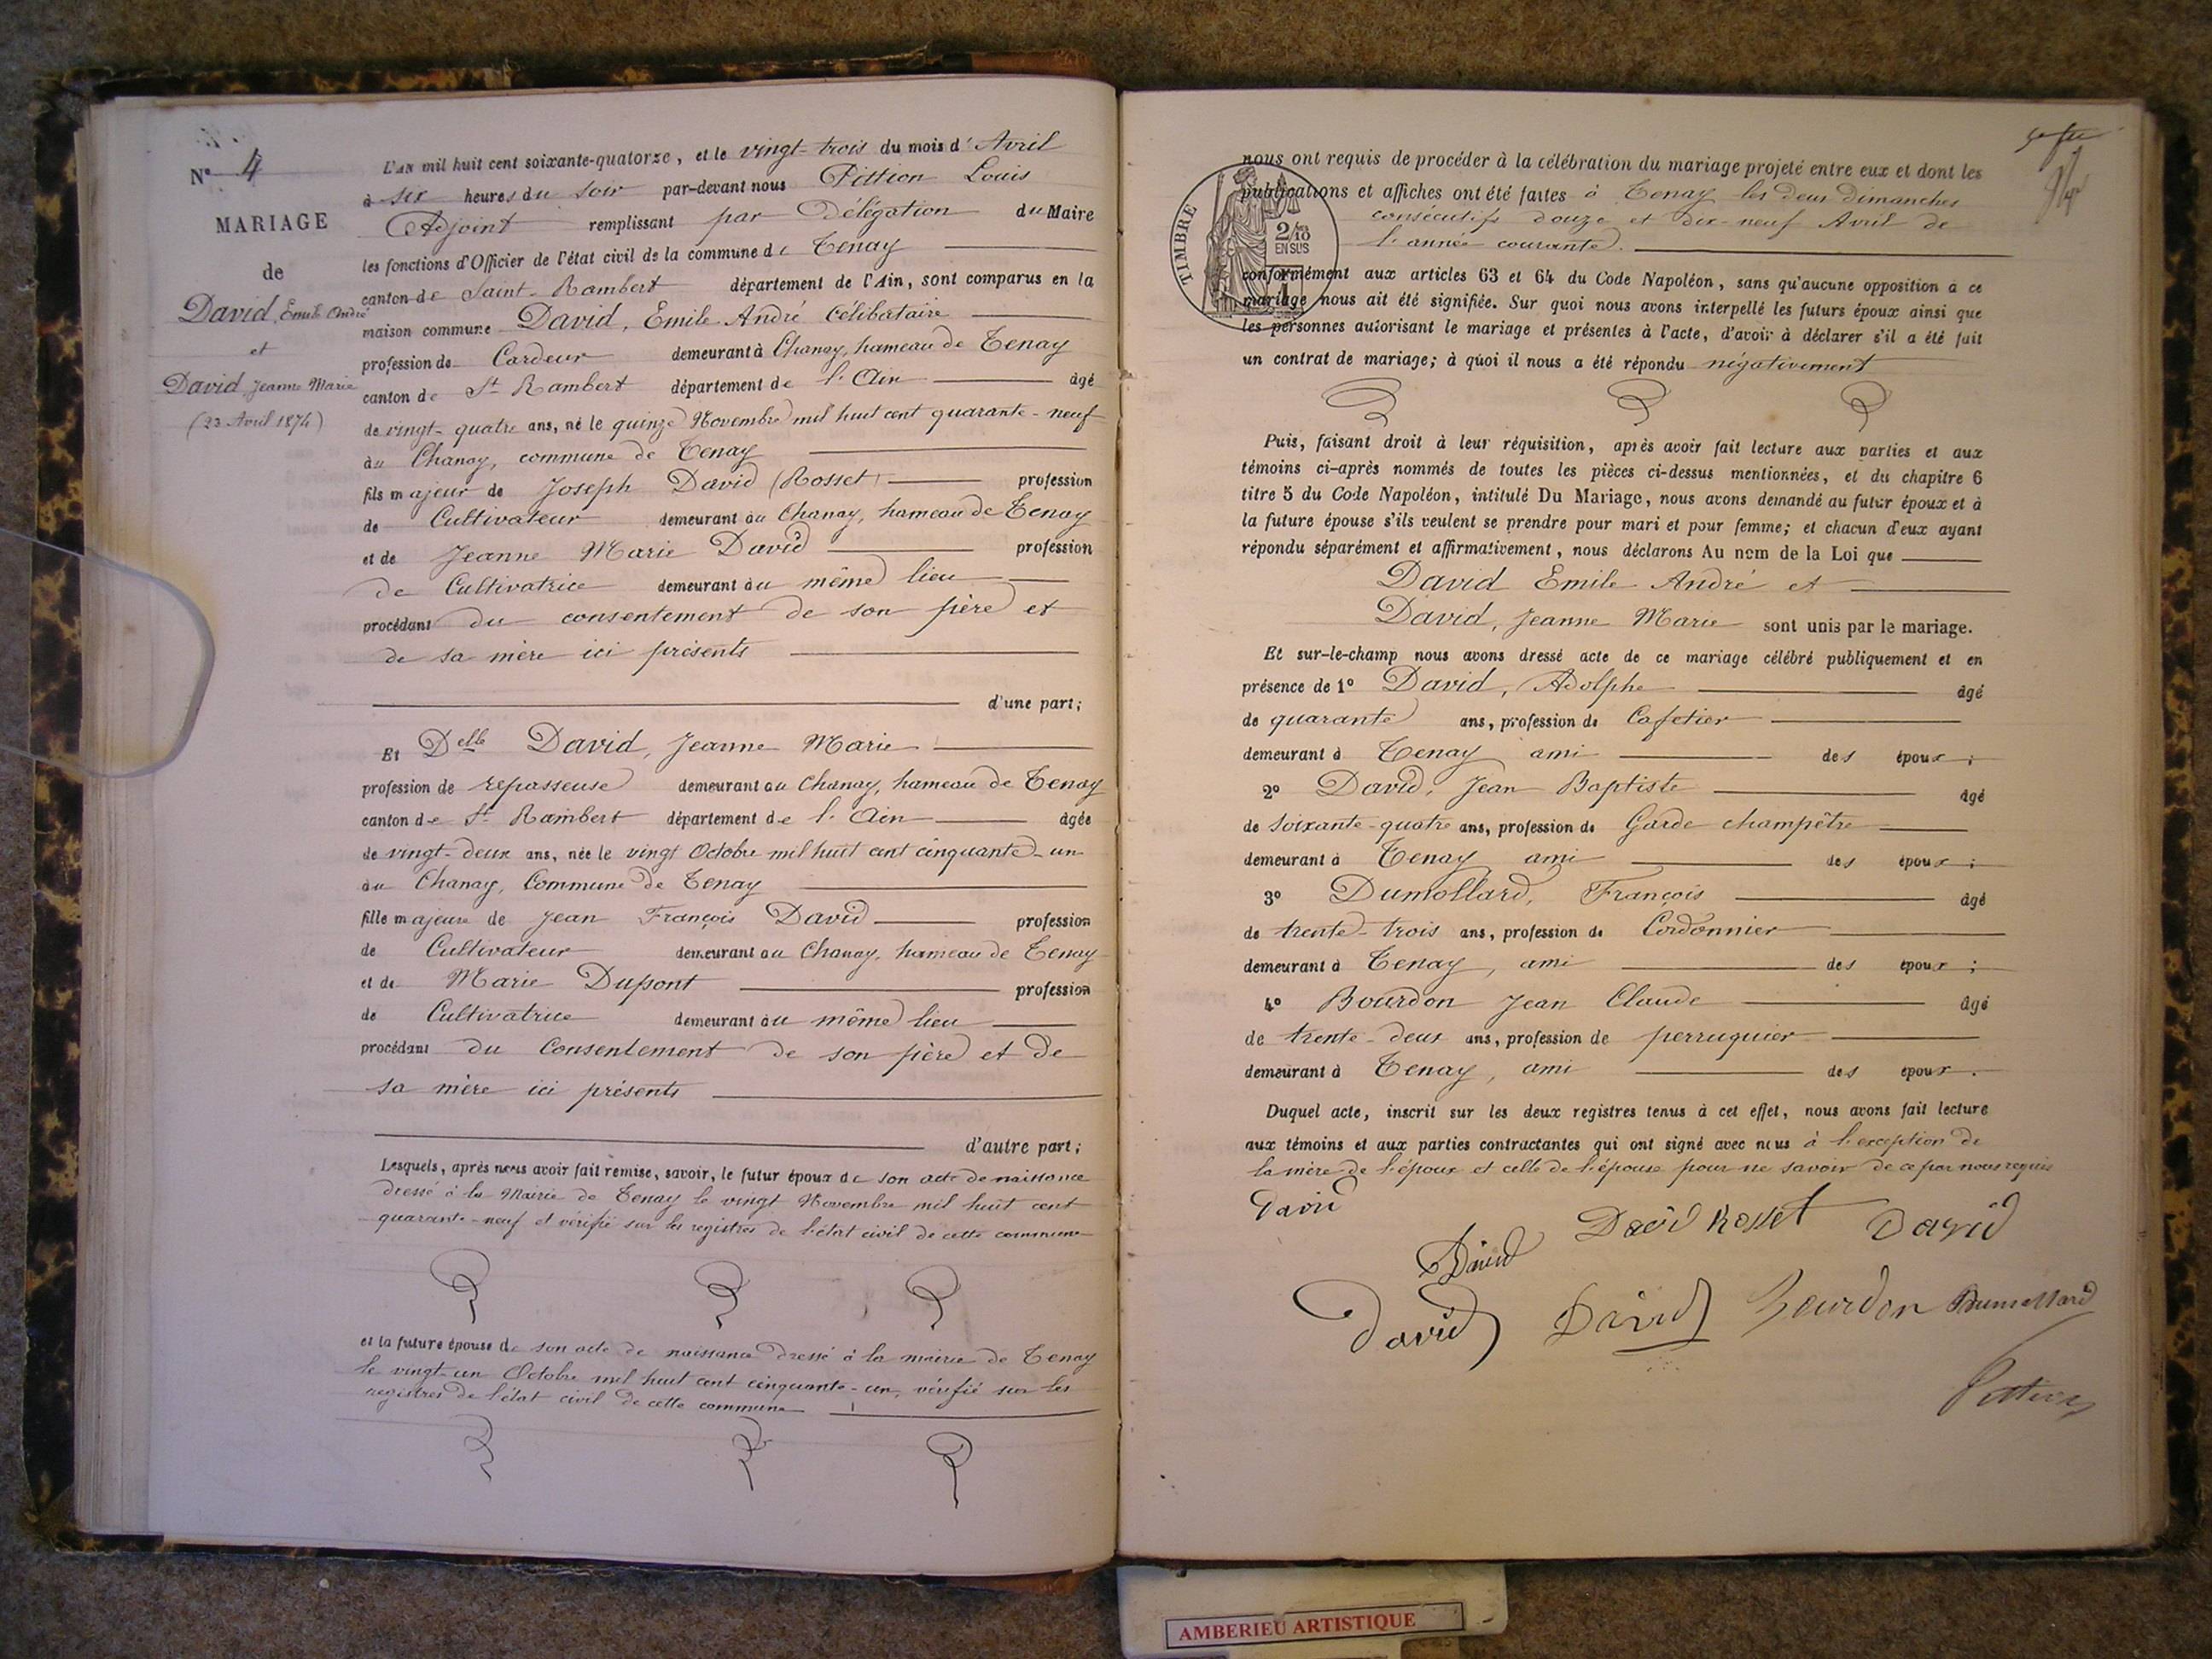 N° 4
MARIAGE
de
David, Emile André
et
David, Jeanne Marie
(23 Avril 1874)
L'AN mil huit cent soixante-quatorze, et le vingt-trois du mois d'Avril
à six heures du soir par-devant nous Pittion Louis
Adjoint remplissant par Délégation du Maire
les fonctions d'Officier de l'état civil de la commune de Tenay
canton de Saint-Rambert département de l'Ain, sont comparus en la
maison commune David, Emile André Célibataire
profession de Cardeur demeurant à Chanay, hameau de Tenay
canton de St Rambert département de l'Ain âgé
de vingt-quatre ans, né le quinze Novembre mil huit cent quarante-neuf
au Chanay, commune de Tenay
fils majeur de Joseph David (Rosset) profession
de Cultivateur demeurant au Chanay, hameau de Tenay
et de Jeanne Marie David profession
de Cultivatrice demeurant au même lieu
procédant du consentement de son père et
de sa mère ici présents
d'une part;
Et Delle David, Jeanne Marie
profession de repasseuse demeurant au Chanay, hameau de Tenay
canton de St Rambert département de l'Ain âgée
de vingt-deux ans, née le vingt Octobre mil huit cent cinquante-un
au Chanay, Commune de Tenay
fille majeure de Jean François David profession
de Cultivateur demeurant au Chanay, hameau de Tenay
et de Marie Dupont profession
de Cultivatrice demeurant au même lieu
procédant du Consentement de son père et de
sa mère ici présents
d'autre part;
Lesquels, après nous avoir fait remise, savoir, le futur époux de son acte de naissance
dressé à la Mairie de Tenay le vingt Novembre mil huit cent
quarante-neuf et vérifié sur les registres de l'état civil de cette commune
et la future épouse de son acte de naissance dressé à la mairie de Tenay
le vingt-un Octobre mil huit cent cinquante-un, vérifié sur les
registres de l'état civil de cette commune
TIMBRE
2/10
EN SUS
nous ont requis de procéder à la célébration du mariage projeté entre eux et dont les
publications et affiches ont été faites à Tenay les deux dimanches
consécutifs douze et dix-neuf Avril de
l'année courante.
conformément aux articles 63 et 64 du Code Napoléon, sans qu'aucune opposition à ce
mariage nous ait été signifiée. Sur quoi nous avons interpellé les futurs époux ainsi que
les personnes autorisant le mariage et présentes à l'acte, d'avoir à déclarer s'il a été fait
un contrat de mariage; à quoi il nous a été répondu négativement
Puis, faisant droit à leur réquisition, après avoir fait lecture aux parties et aux
témoins ci-après nommés de toutes les pièces ci-dessus mentionnées, et du chapitre 6
titre 5 du Code Napoléon, intitulé Du Mariage, nous avons demandé au futur époux et à
la future épouse s'ils veulent se prendre pour mari et pour femme; et chacun d'eux ayant
répondu séparément et affirmativement, nous déclarons Au nom de la Loi que
David Emile André et
David, Jeanne Marie sont unis par le mariage.
Et sur-le-champ nous avons dressé acte de ce mariage célébré publiquement et en
présence de 1° David, Adolphe âgé
de quarante ans, profession de Cafetier
demeurant à Tenay ami des époux;
2° David, Jean Baptiste âgé
de soixante-quatre ans, profession de Garde champêtre
demeurant à Tenay ami des époux;
3° Dumollard, François âgé
de trente-trois ans, profession de Cordonnier
demeurant à Tenay, ami des époux;
4° Bourdon Jean Claude âgé
de trente-deux ans, profession de perruquier
demeurant à Tenay, ami des époux.
Duquel acte, inscrit sur les deux registres tenus à cet effet, nous avons fait lecture
aux témoins et aux parties contractantes qui ont signé avec nous à l'exception de
la mère de l'époux et celle de l'épouse pour ne savoir de ce par nous requis
David
David Rosset David
David
David David Bourdon Dumollard
Pittion
AMBERIEU ARTISTIQUE